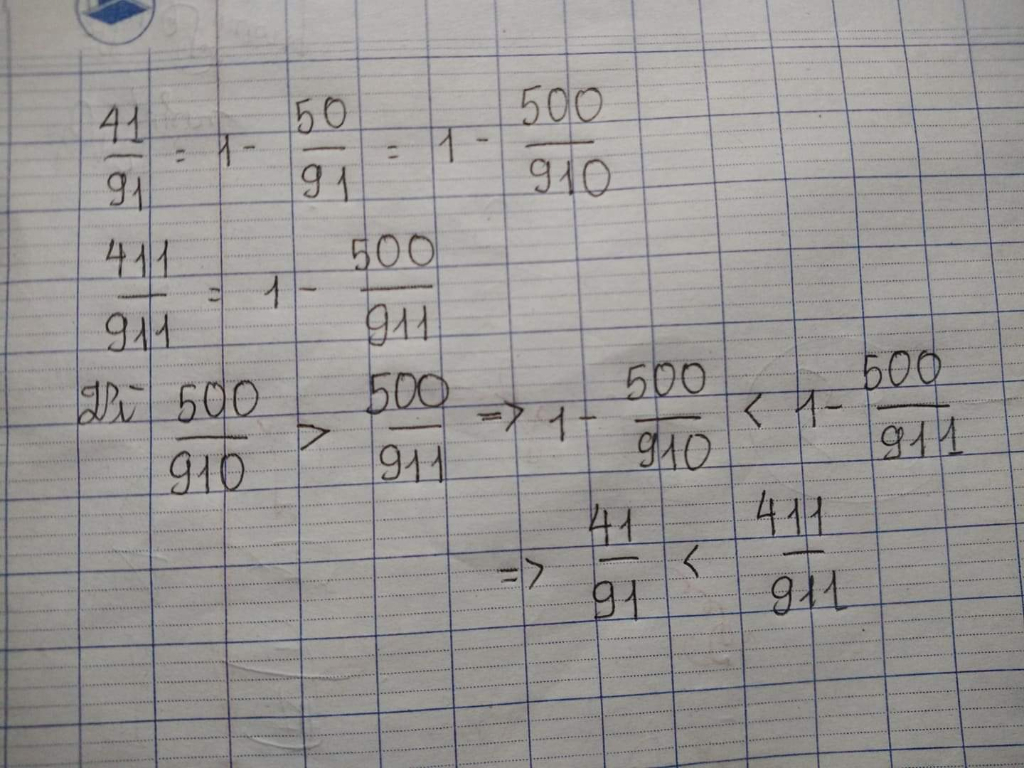 41/91 = 1 - 50/91 = 1 - 500/910
411/911 = 1 - 500/911
Vì 500/910 > 500/911 => 1 - 500/910 < 1 - 500/911
=> 41/91 < 411/911